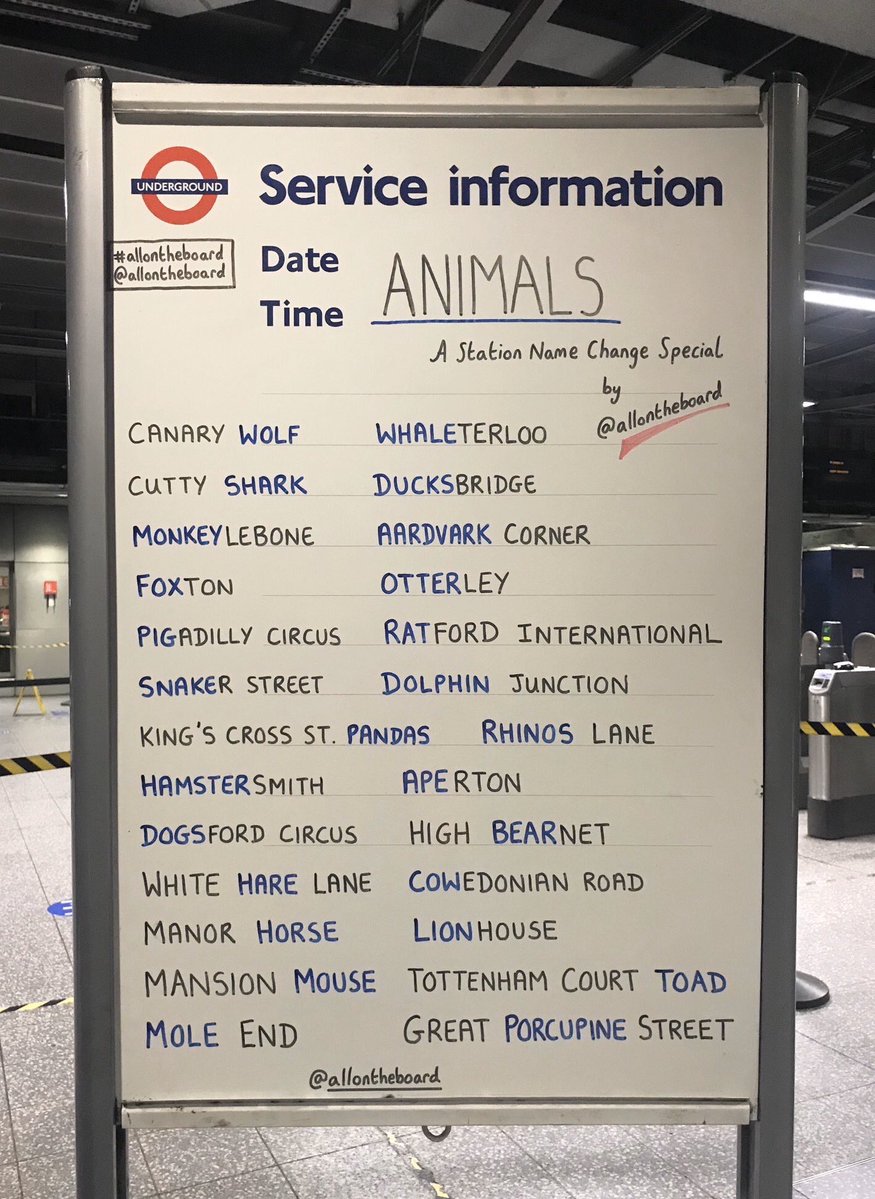 UNDERGROUND
Service information
#allontheboard
@allontheboard
Date
Time
ANIMALS
A Station Name Change Special
by
@allontheboard
CANARY WOLF WHALETERLOO
CUTTY SHARK DUCKSBRIDGE
MONKEYLEBONE AARDVARK CORNER
FOXTON OTTERLEY
PIGADILLY CIRCUS RATFORD INTERNATIONAL
SNAKER STREET DOLPHIN JUNCTION
KING'S CROSS ST. PANDAS RHINOS LANE
HAMSTERSMITH APERTON
DOGSFORD CIRCUS HIGH BEARNET
WHITE HARE LANE COWEDONIAN ROAD
MANOR HORSE LIONHOUSE
MANSION MOUSE TOTTENHAM COURT TOAD
MOLE END GREAT PORCUPINE STREET
@allontheboard